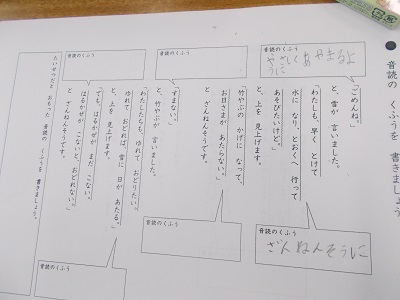 ● 音読の くふうを 書きましょう。
音読のくふう
やさしくあやまるよ
うに
「ごめんね。」
と、雪が 言いました。
「わたしも、早く とけて
水に なり、とおくへ 行って
あそびたいけど。」
と、上を 見上げます。
音読のくふう
ざんねんそうに
「竹やぶの かげに なって、
お日さまが あたらない。」
と ざんねんそうです。
音読のくふう
音読のくふう
「すまない。」
と、竹やぶが 言いました。
「わたしたちも、ゆれて おどりたい。
ゆれて おどれば、雪に 日が あたる。」
と、上を 見上げます。
音読のくふう
「でも、はるかぜが まだ こない。
はるかぜが こないと、おどれない。」
と ざんねんそうです。
音読のくふう
たいせつだと おもった 音読の くふうを 書きましょう。